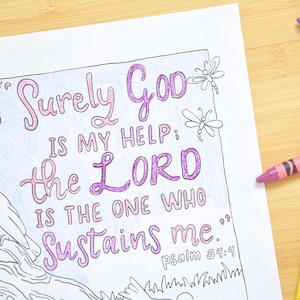 “Surely GOD
IS MY HELP;
the LORD
IS THE ONE WHO
Sustains me.”
psalm 54:4